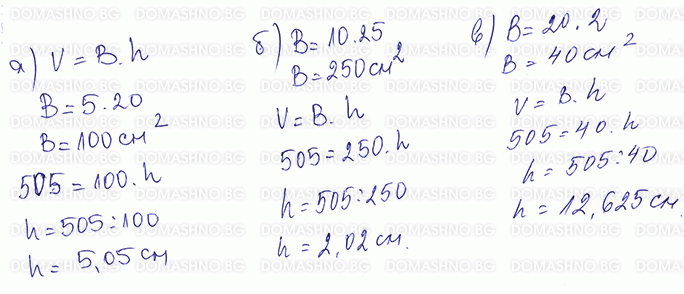 а) V = B.h
B = 5.20
B = 100 см²
505 = 100.h
h = 505:100
h = 5,05 см
б) B = 10.25
B = 250 см²
V = B.h
505 = 250.h
h = 505:250
h = 2,02 см.
в) B = 20.2
B = 40 см²
V = B.h
505 = 40.h
h = 505:40
h = 12,625 см.
DOMASHNO.BG